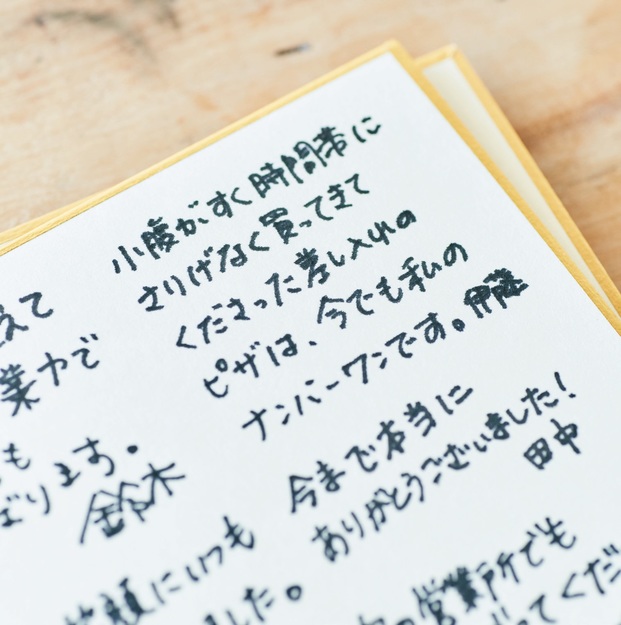 小腹がすく時間帯に
さりげなく買ってきて
くださった差し入れの
ピザは、今でも私の
ナンバーワンです。伊藤
今まで本当に
ありがとうございました！
田中
えて
業力で
も
ります。
鈴木
笑顔にいつも
した。
営業所でも
ってくだ